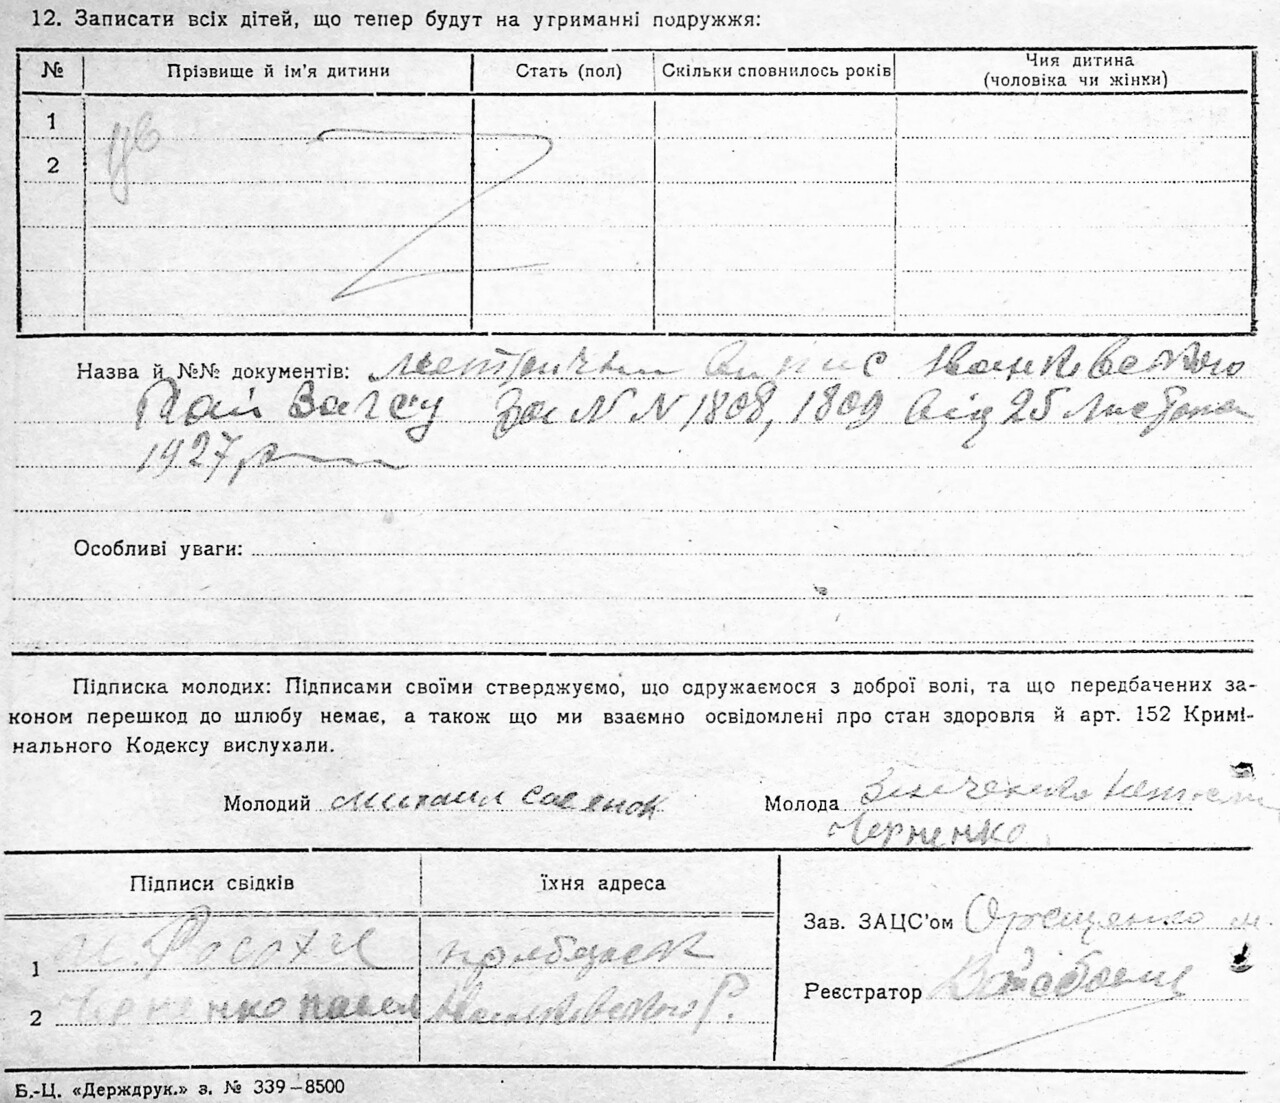 12. Записати всіх дітей, що тепер будут на утриманні подружжя:
№ Прізвище й ім'я дитини Стать (пол) Скільки сповнилось років Чия дитина (чоловіка чи жінки)
1
2
Назва й №№ документів: метричні випис Іванківського
Рай Загсу за N N 1808, 1809 від 25 листопада
1927 р
Особливі уваги:
Підписка молодих: Підписами своїми стверджуємо, що одружаємося з доброї волі, та що передбачених за-
коном перешкод до шлюбу немає, а також що ми взаємно освідомлені про стан здоровля й арт. 152 Кримі-
нального Кодексу вислухали.
Молодий Михаил Саенок Молода
Черненко
Підписи свідків їхня адреса
Зав. ЗАЦС'ом
1
Реєстратор
2 Черненко павел Іванківського Р.
Б.-Ц. «Держдрук.» з. № 339–8500